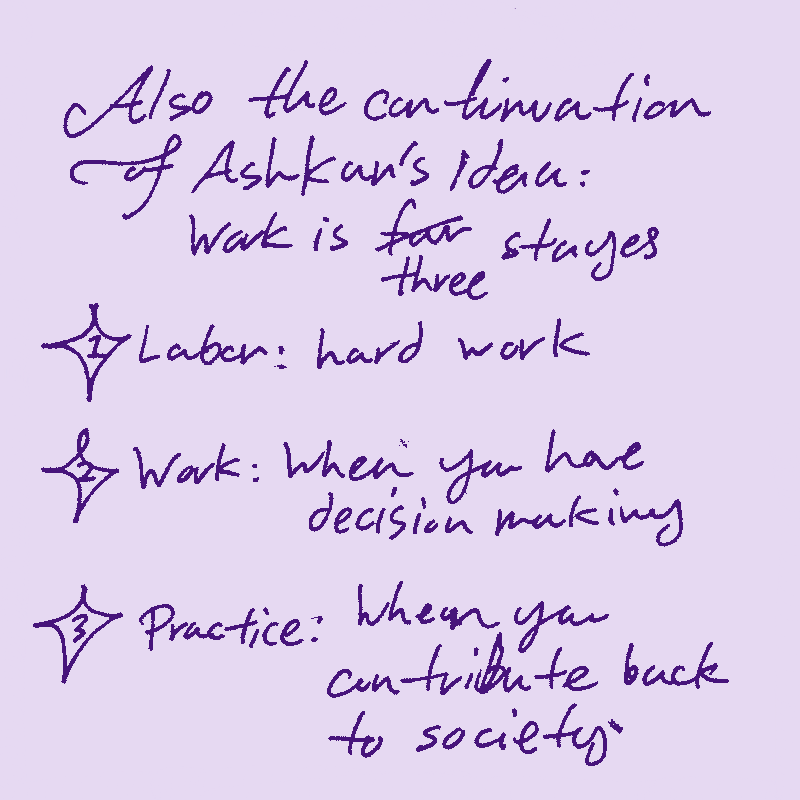 Also the continuation
of Ashkan's idea:
Work is stages
three
1 Labor: hard work
2 Work: When you have
decision making
3 Practice: When you
contribute back
to society.